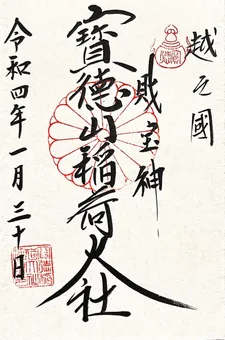 越之國
財宝神
寶徳山稲荷大社
令和四年一月三十日